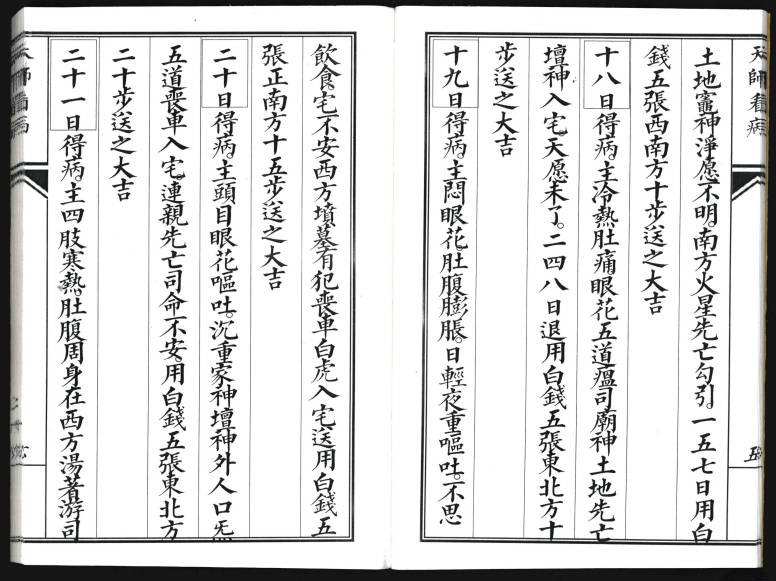 天師看病
土地竈神淨愿不明。南方火星先亡勾引。一五七日用白
錢五張西南方十步送之大吉
十八日得病。主冷熱肚痛眼花五道瘟司廟神土地先亡
壇神入宅。天愿未了。二四八日退用白錢五張東北方十
步送之大吉
十九日得病。主悶眼花。肚腹膨脹。日輕夜重嘔吐。不思
飲食。宅不安西方墳墓有犯喪車白虎入宅送用白錢五
張正南方十五步送之大吉
二十日得病。主頭目眼花嘔吐。沉重家神壇神外人口
五道喪車入宅。連親先亡司命不安。用白錢五張東北方
二十步送之大吉
二十一日得病。主四肢寒熱。肚腹周身在西方湯著游司
天師看病